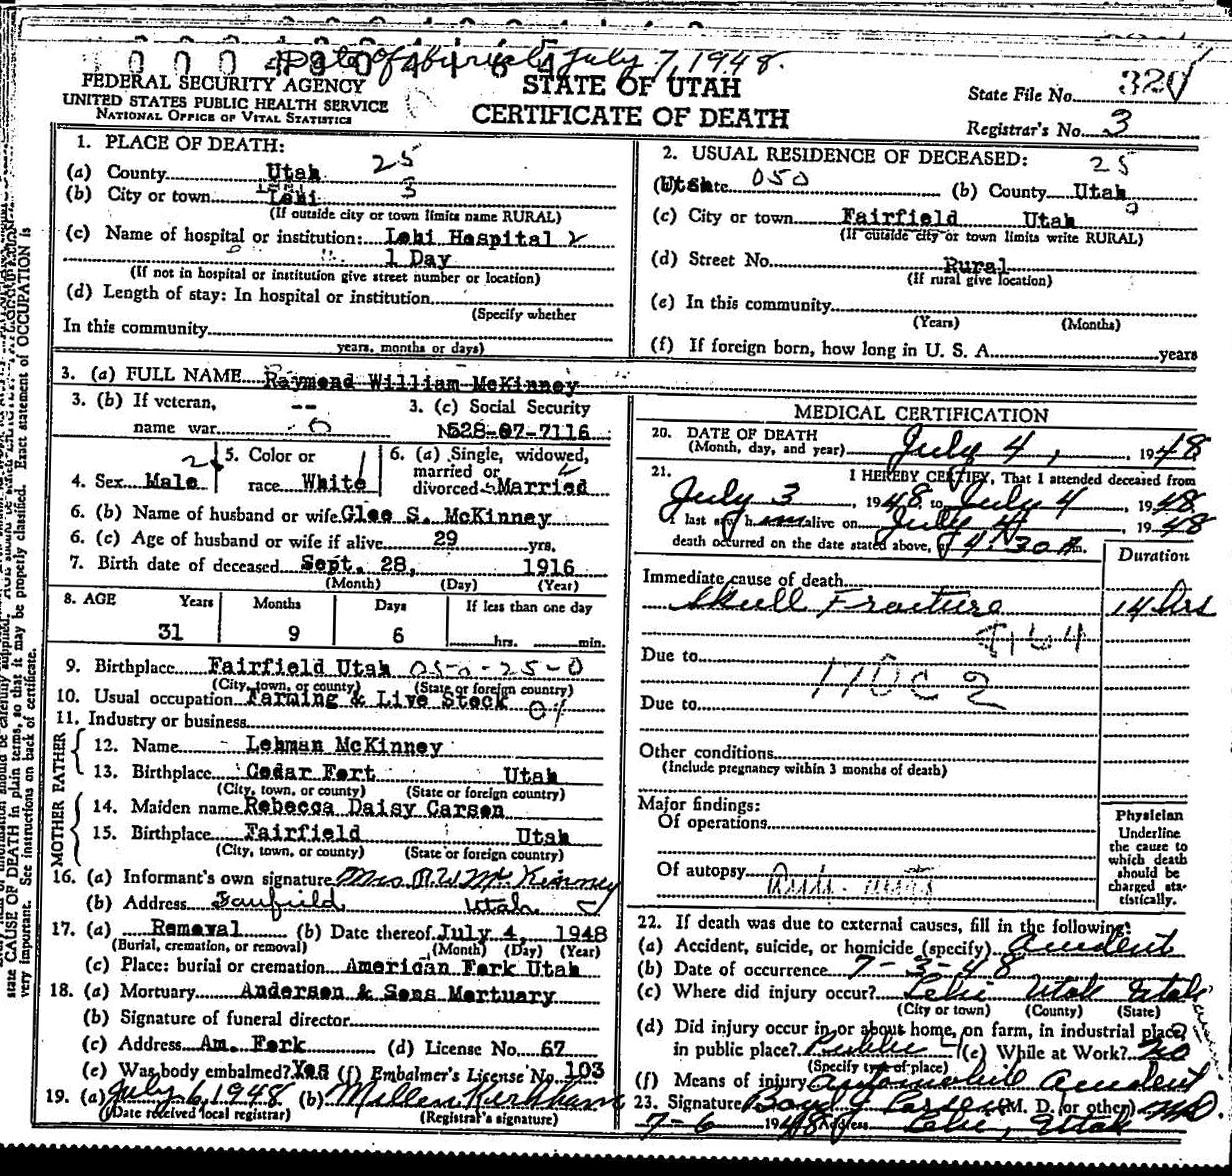 Date of burial July 7, 1948.
FEDERAL SECURITY AGENCY
UNITED STATES PUBLIC HEALTH SERVICE
NATIONAL OFFICE OF VITAL STATISTICS
STATE OF UTAH
CERTIFICATE OF DEATH
State File No. 320
Registrar's No. 3
1. PLACE OF DEATH: 25
(a) County Utah
(b) City or town Lehi 3
(If outside city or town limits name RURAL)
(c) Name of hospital or institution: Lehi Hospital 2
1 Day
(If not in hospital or institution give street number or location)
(d) Length of stay: In hospital or institution
(Specify whether
In this community
years, months or days)
2. USUAL RESIDENCE OF DECEASED: 25
Utah 050 (b) County Utah
(c) City or town Fairfield Utah
(If outside city or town limits write RURAL)
(d) Street No. Rural
(If rural give location)
(e) In this community
(Years) (Months)
(f) If foreign born, how long in U. S. A. years
3. (a) FULL NAME Raymond William McKinney
3. (b) If veteran, --
name war 0
3. (c) Social Security
No 528-07-7116
4. Sex Male 2
5. Color or
race White 1
6. (a) Single, widowed,
married or
divorced Married
6. (b) Name of husband or wife Glee S. McKinney
6. (c) Age of husband or wife if alive 29 yrs.
7. Birth date of deceased Sept. 28, 1916
(Month) (Day) (Year)
8. AGE Years Months Days If less than one day
31 9 6 hrs. min.
9. Birthplace Fairfield Utah 050-25-0
(City, town, or county) (State or foreign country)
10. Usual occupation Farming & Live Stock
11. Industry or business
FATHER
12. Name Lehman McKinney
13. Birthplace Cedar Fort Utah
(City, town, or county) (State or foreign country)
MOTHER
14. Maiden name Rebecca Daisy Carson
15. Birthplace Fairfield Utah
(City, town, or county) (State or foreign country)
16. (a) Informant's own signature Mrs. R. W. McKinney
(b) Address Fairfield Utah
17. (a) Removal (b) Date thereof July 4, 1948
(Burial, cremation, or removal) (Month) (Day) (Year)
(c) Place: burial or cremation American Fork Utah
18. (a) Mortuary Anderson & Sons Mortuary
(b) Signature of funeral director
(c) Address Am. Fork (d) License No. 67
(e) Was body embalmed? Yes (f) Embalmer's License No. 103
19. (a) July 6, 1948 (b) Millen Kirkham
(Date received local registrar) (Registrar's signature)
MEDICAL CERTIFICATION
20. DATE OF DEATH
(Month, day, and year) July 4, 1948
21. I HEREBY CERTIFY, That I attended deceased from
July 3, 1948, to July 4, 1948
I last saw him alive on July 4, 1948
death occurred on the date stated above, at 4:30 A m.
Duration
Immediate cause of death
Skull Fracture 14 hrs
Due to
170c 2
Due to
Other conditions
(Include pregnancy within 3 months of death)
Major findings:
Of operations
Of autopsy
Physician
Underline
the cause to
which death
should be
charged sta-
tistically.
22. If death was due to external causes, fill in the following:
(a) Accident, suicide, or homicide (specify) Accident
(b) Date of occurrence 7-3-48
(c) Where did injury occur? Lehi Utah Utah
(City or town) (County) (State)
(d) Did injury occur in or about home, on farm, in industrial place,
in public place? Public (e) While at Work? No
(Specify type of place)
(f) Means of injury Automobile Accident
23. Signature Boyd J Larsen (M. D. or other) MD.
7-6 1948 Address Lehi, Utah
state CAUSE OF DEATH in plain terms, so that it may be properly classified. Exact statement of OCCUPATION is
very important. See instructions on back of certificate.